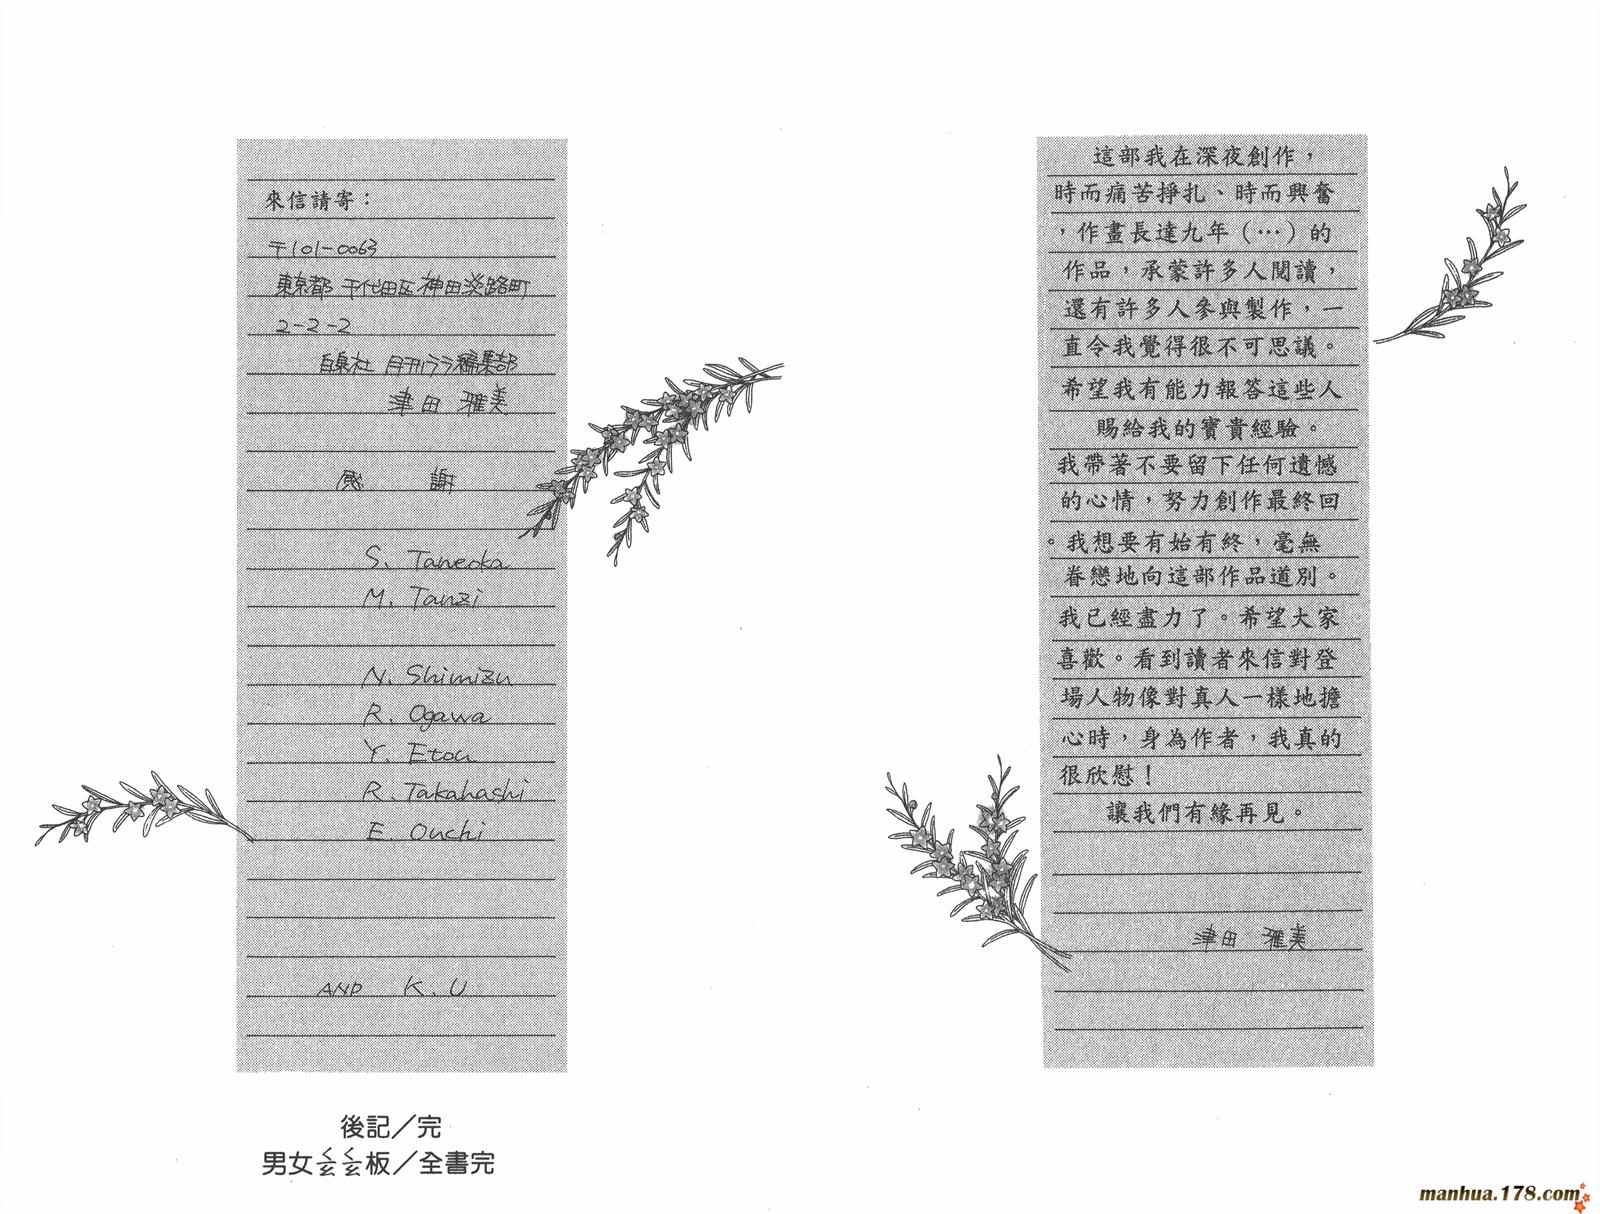 這部我在深夜創作，
時而痛苦掙扎、時而興奮
，作畫長達九年（…）的
作品，承蒙許多人閱讀，
還有許多人參與製作，一
直令我覺得很不可思議。
希望我有能力報答這些人
賜給我的寶貴經驗。
我帶著不要留下任何遺憾
的心情，努力創作最終回
。我想要有始有終，毫無
眷戀地向這部作品道別。
我已經盡力了。希望大家
喜歡。看到讀者來信對登
場人物像對真人一樣地擔
心時，身為作者，我真的
很欣慰！
讓我們有緣再見。
津田 雅美
來信請寄：
〒101-0063
東京都 千代田区 神田淡路町
2-2-2
白泉社 月刊ララ編集部
津田 雅美
感 謝
S. Taneoka
M. Tanzi
N. Shimizu
R. Ogawa
Y. Etou
R. Takahashi
E. Ouchi
AND K.U
後記／完
男女ㄑㄑ板／全書完
manhua.178.com